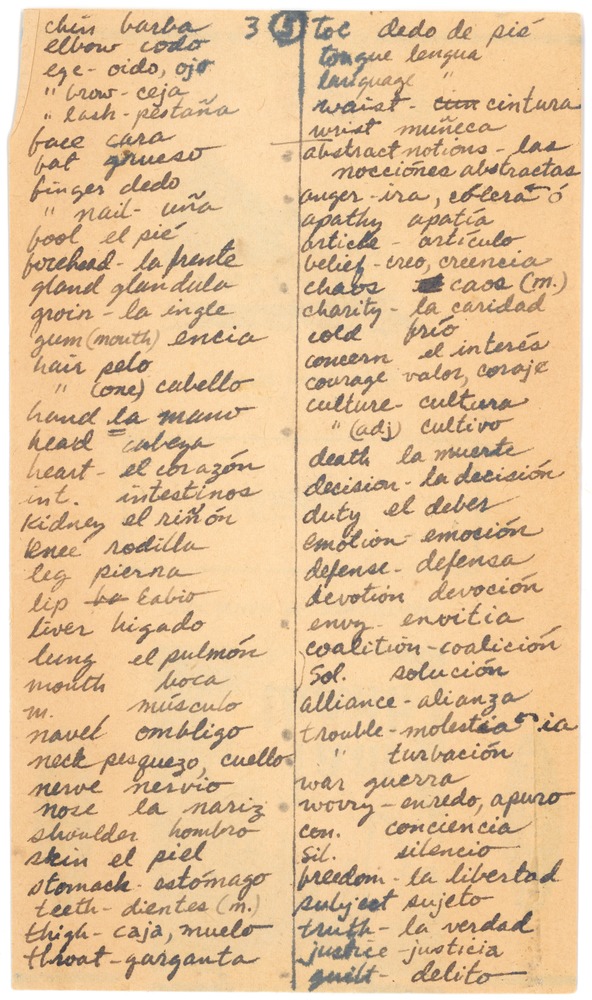 chin barba
elbow codo
eye - oido, ojo
" brow - ceja
" lash - pestaña
face cara
fat grueso
finger dedo
" nail - uña
foot el pié
forehead - la frente
gland glandula
groin - la ingle
gum (mouth) encia
hair pelo
" (one) cabello
hand la mano
head cabeza
heart - el corazón
int. intestinos
Kidney el riñón
knee rodilla
leg pierna
lip labio
liver higado
lung el pulmón
mouth boca
m. músculo
navel ombligo
neck pesquezo, cuello
nerve nervio
nose la nariz
shoulder hombro
skin el piel
stomach - estómago
teeth - dientes (m.)
thigh - caja, muelo
throat - garganta
3 (5) toe dedo de pié
tongue lengua
language "
waist - cintura
wrist muñeca
abstract notions - las
nocciónes abstractas
anger - ira, cólera ó
apathy apatía
article - artículo
belief - creo, creencia
chaos caos (m.)
charity - la caridad
cold frío
concern el interés
courage valor, coraje
culture - cultura
" (adj) cultivo
death la muerte
decision - la decisión
duty el deber
emotion - emoción
defense - defensa
devotion devoción
envy - envitia
coalition - coalición
Sol. solución
alliance - alianza
trouble - molestia ia
" turbación
war guerra
worry - enredo, apuro
con. conciencia
Sil. silencio
freedom - la libertad
subject sujeto
truth - la verdad
justice - justicia
guilt - delito